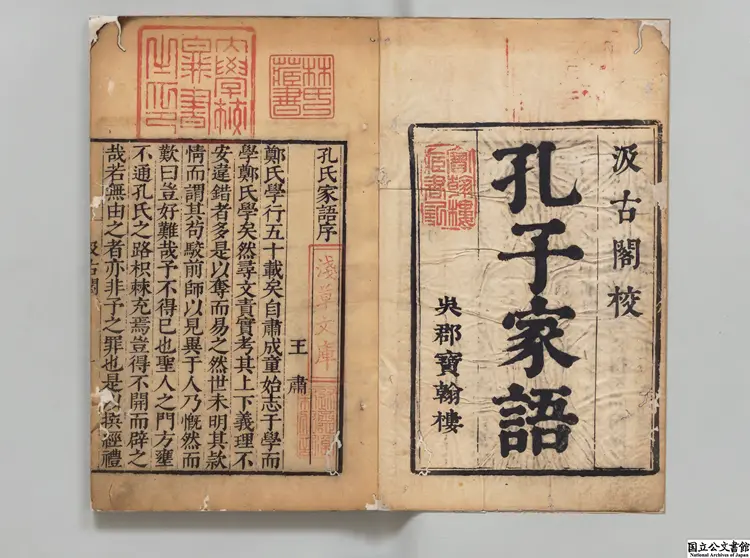 汲古閣校
孔子家語
吳郡寶翰樓
寶翰樓藏書記
林氏藏書
大學校圖書之印
淺草文庫
孔氏家語序
王肅
鄭氏學行五十載矣自肅成童始志于學而
學鄭氏學矣然尋文責實考其上下義理不
安違錯者多是以奪而易之然世未明其款
情而謂其苟駁前師以見異于人乃慨然而
歎曰豈好難哉予不得已也聖人之門方壅
不通孔氏之路枳棘充焉豈得不開而辟之
哉若無由之者亦非予之罪也是以撰經禮
汲古閣
国立公文書館
National Archives of Japan